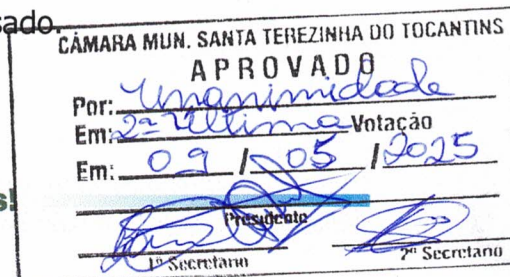 sado.
CÂMARA MUN. SANTA TEREZINHA DO TOCANTINS
APROVADO
Por: Unanimidade
Em: 2ª Última Votação
Em: 09 / 05 / 2025
s!
Presidente
1º Secretario
2º Secretario